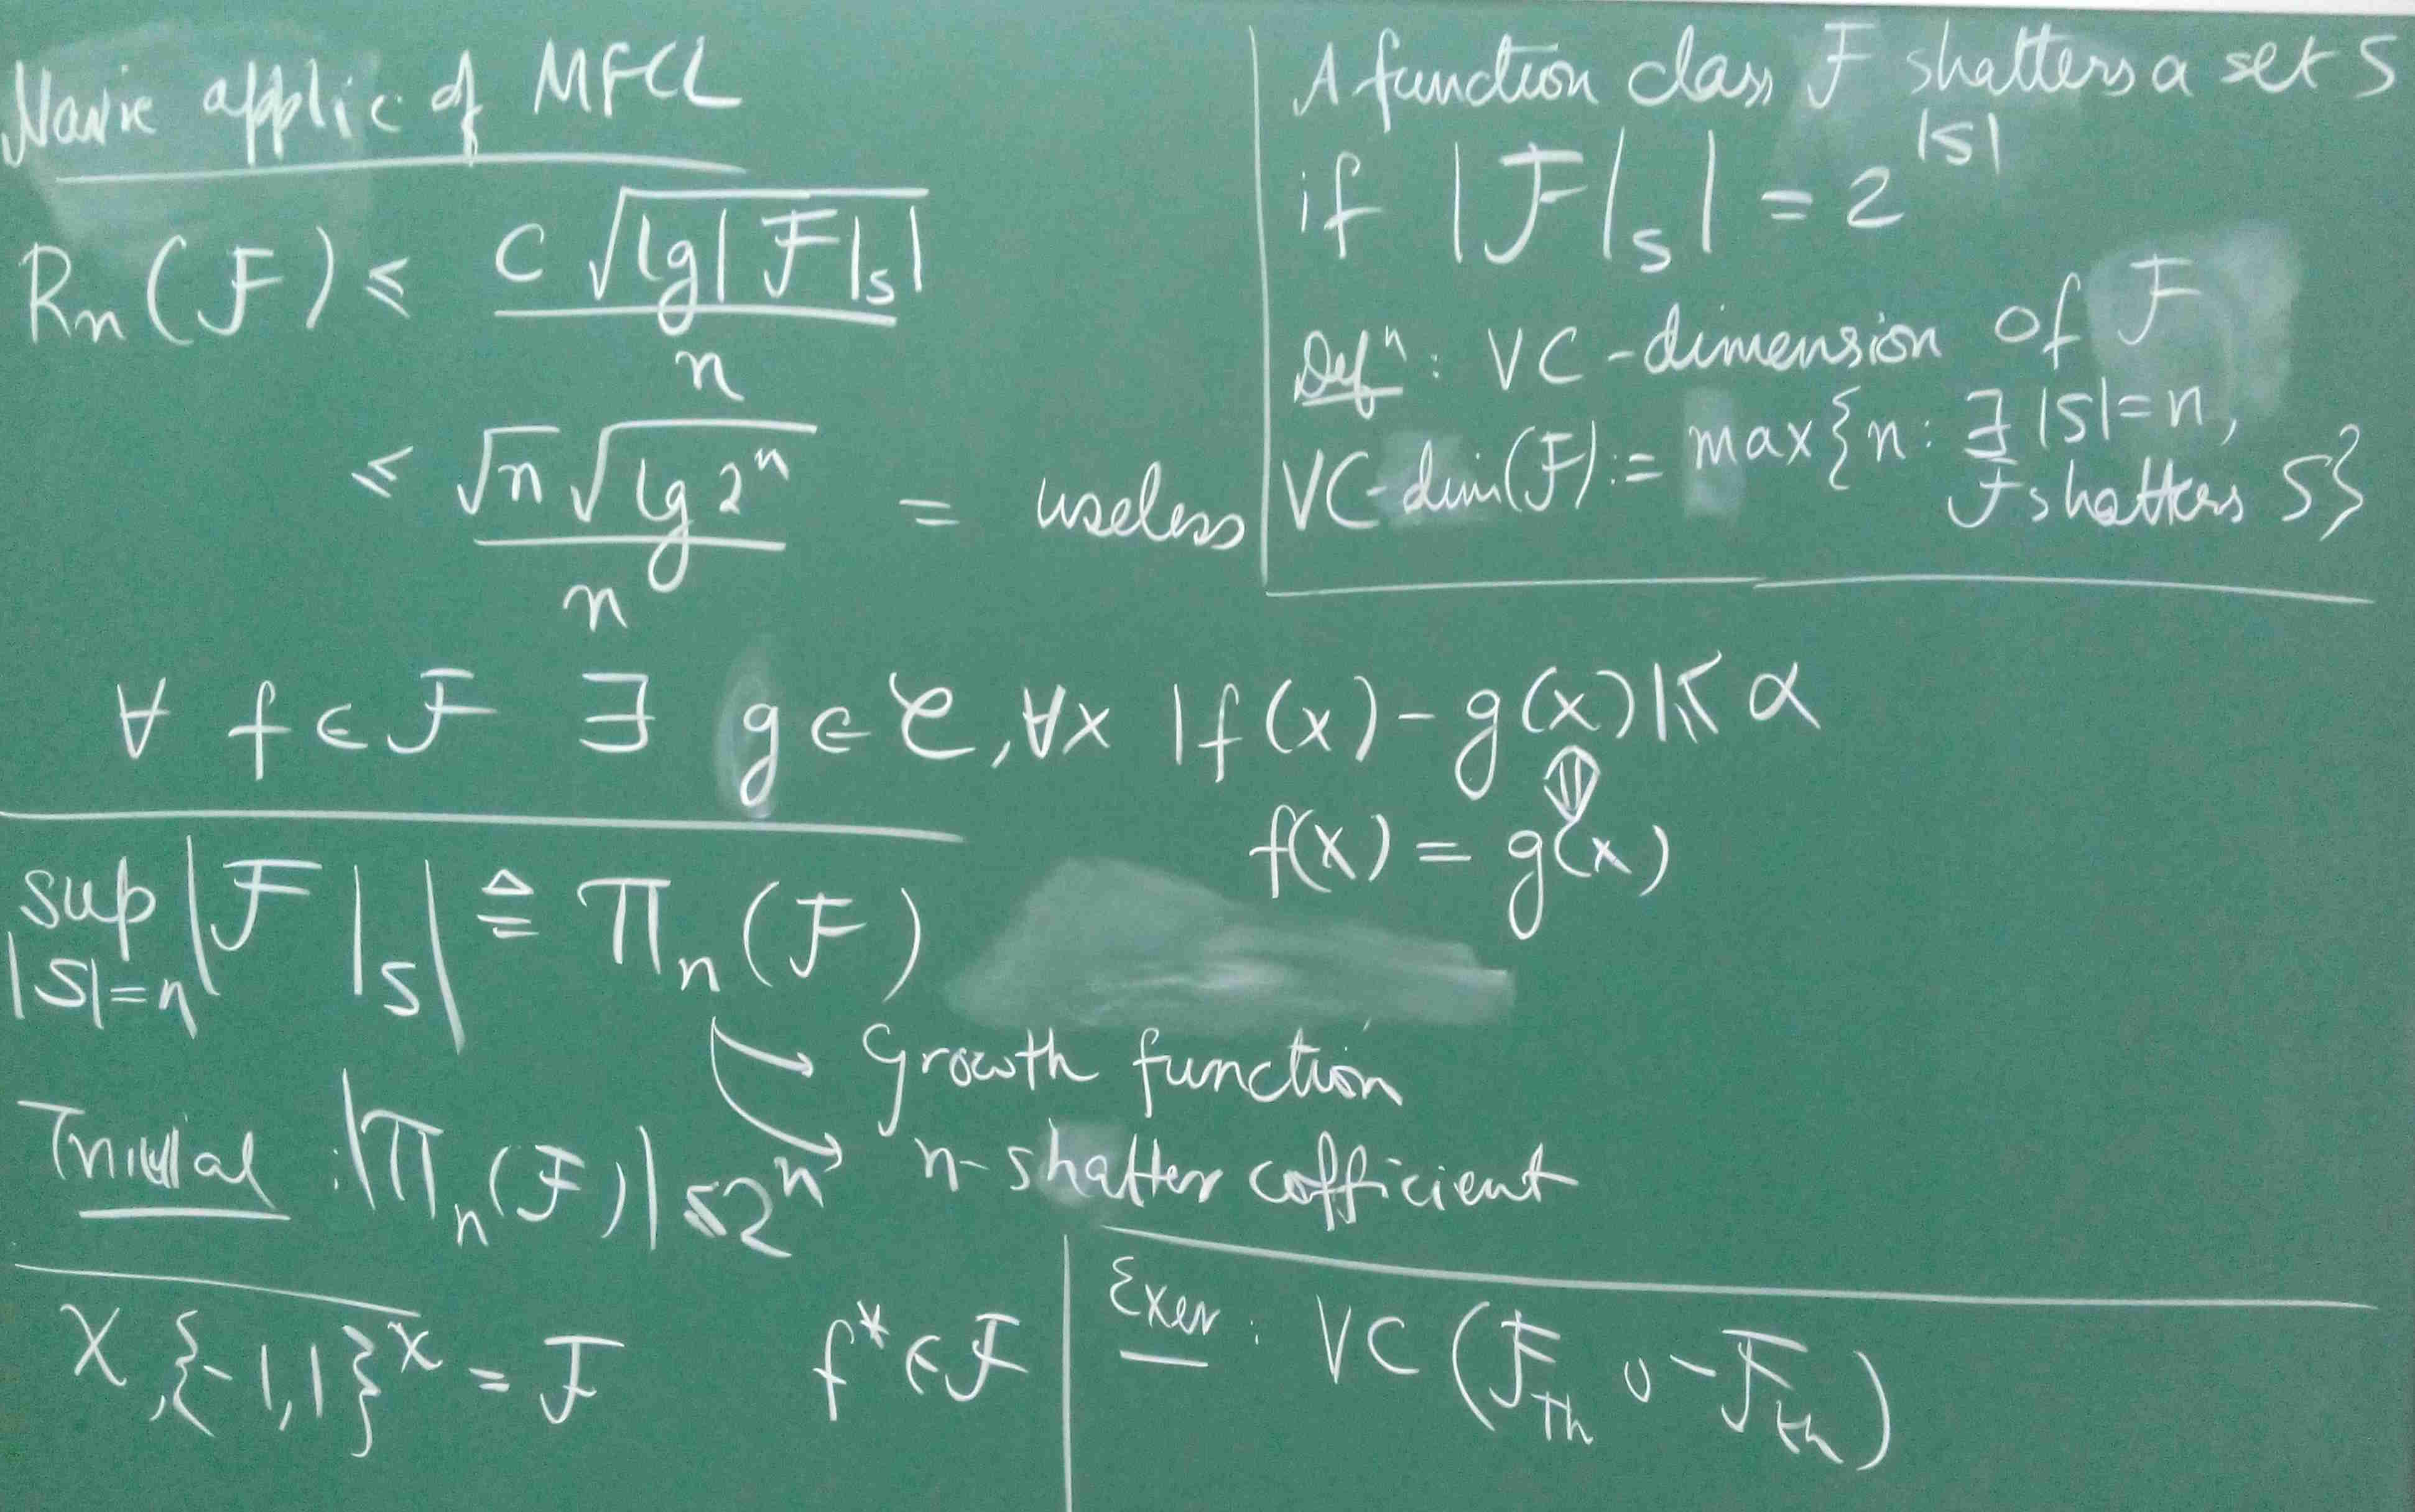 Naive applic of MFCL
Rn(F) ≤ C √(lg|F|s|) / n
≤ √n √(lg 2ⁿ) / n = useless
A function class F shatters a set S
if |F|s| = 2^|S|
Defⁿ: VC-dimension of F
VC-dim(F) := max{n: ∃ |S|=n,
F shatters S}
∀ f ∈ F ∃ g ∈ C, ∀x |f(x) - g(x)| ≤ α
⇕
f(x) = g(x)
sup |F|s| ≜ Πn(F)
|S|=n
→ Growth function
→ n-shatter cofficient
Trivial : |Πn(F)| ≤ 2ⁿ
X, {-1,1}^X = F f* ∈ F
Exer : VC (F_Th ∪ -F_th)